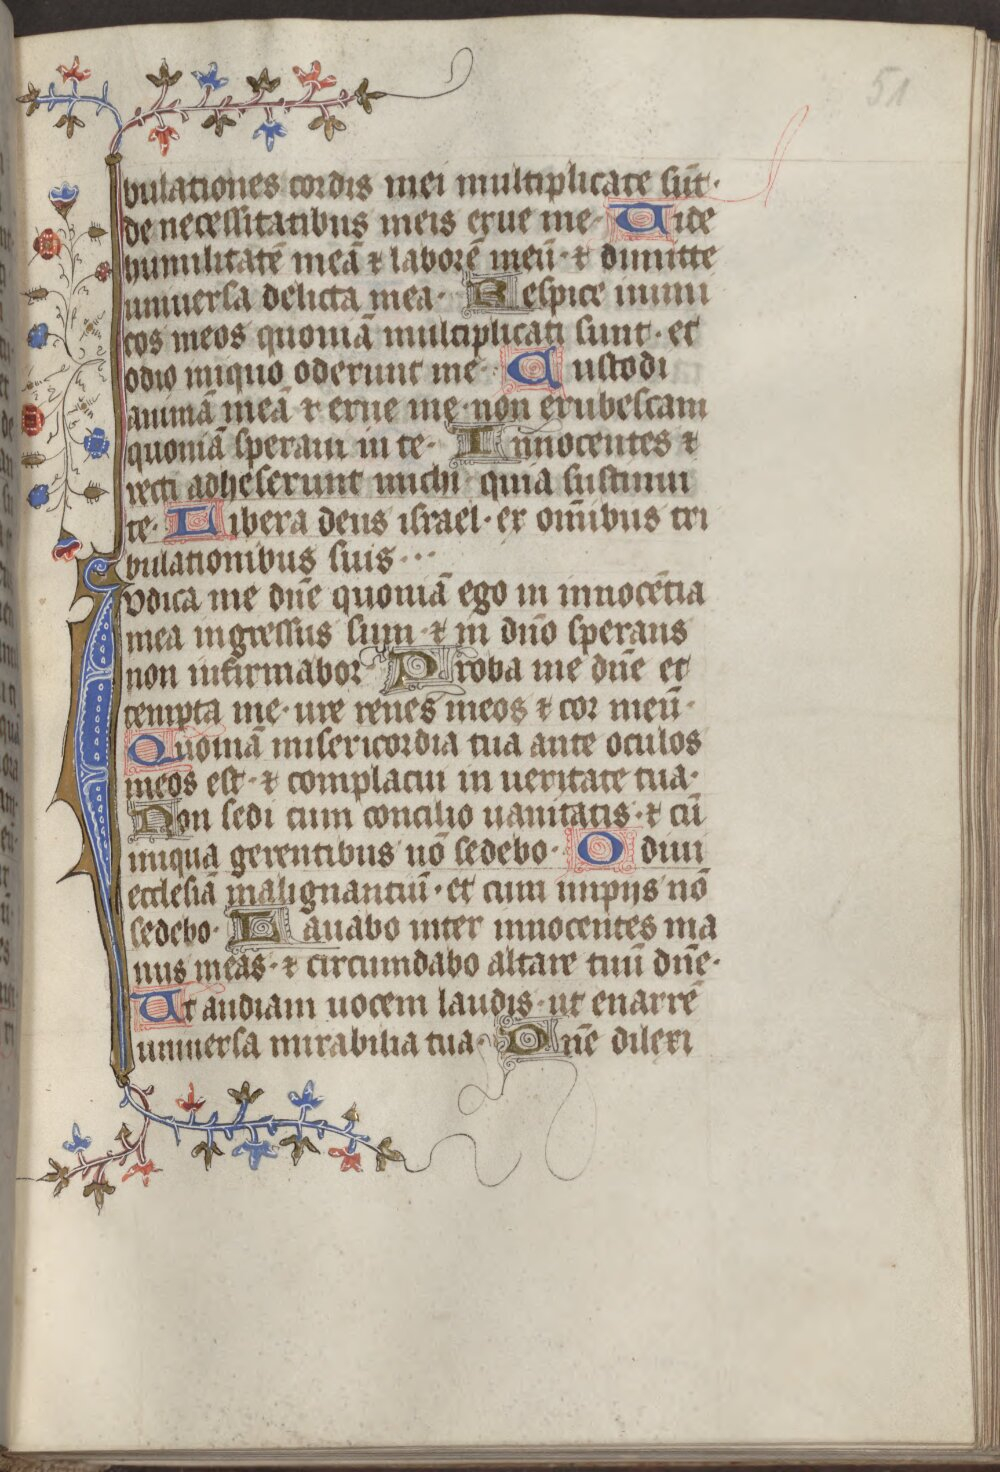 51
bulationes cordis mei multiplicate sūt·
de necessitatibus meis erue me· Vide
humilitatē meā ⁊ laborē meū· ⁊ dimitte
universa delicta mea· Respice inimi
cos meos quoniā multiplicati sunt· et
odio iniquo oderunt me· Custodi
animā meā ⁊ erue me· non erubescam
quoniā speravi in te· Innocentes ⁊
recti adheserunt michi quia sustinui
te· Libera deus israel· ex om̄ibus tri
bulationibus suis···
Iudica me dn̄e quoniā ego in innocētia
mea ingressus sum· ⁊ in dn̄o sperans
non infirmabor Proba me dn̄e et
tempta me· ure renes meos ⁊ cor meū·
Quoniā misericordia tua ante oculos
meos est· ⁊ complacui in ueritate tua·
Non sedi cum concilio uanitatis· ⁊ cū
iniqua gerentibus nō sedebo· Odiui
ecclesiā malignantiū· et cum impijs nō
sedebo· Lauabo inter innocentes ma
nus meas· ⁊ circumdabo altare tuū dn̄e·
Ut audiam uocem laudis· ut enarrē
uniuersa mirabilia tua· Dn̄e dilexi